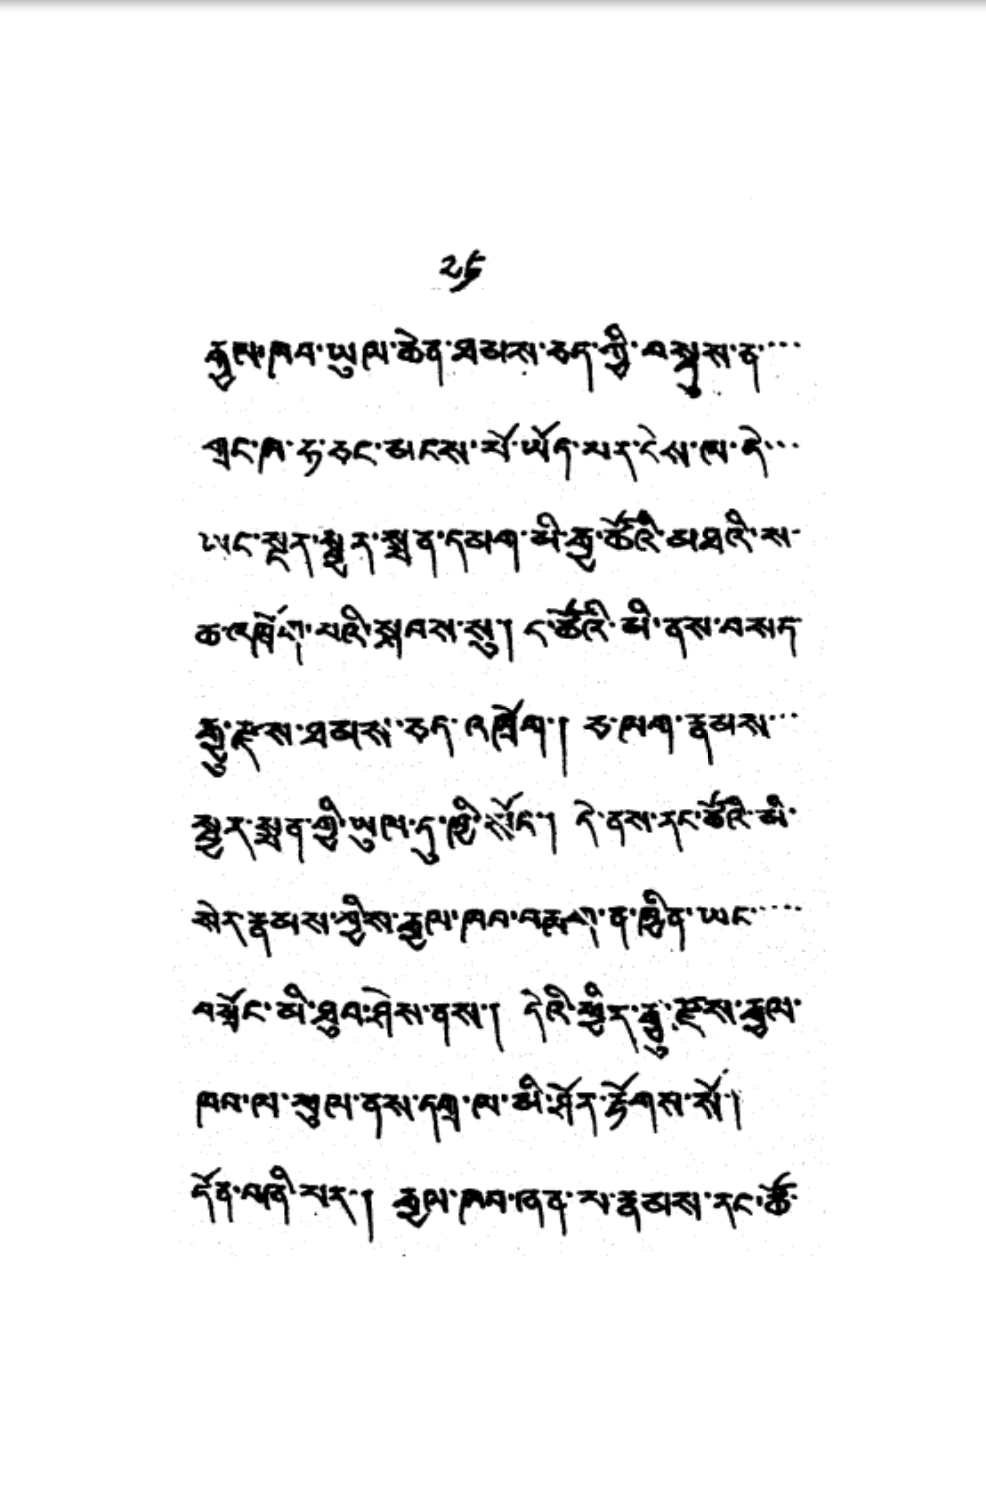 ༢༤
རྒྱལ་ཁབ་ཡུལ་ཆེན་ཐམས་ཅད་ཀྱི་བསྡུས་ན་···
གྲང་ཀ་ཧ་ཅང་མངས་པོ་ཡོད་པར་ངེས་ལ་དེ་···
ཡང་སྔར་སྦྱར་སྨན་དམག་མི་རྒྱ་ཚོའི་མཐའི་ས་
ཆ་འཕྲོག་པའི་སྐབས་སུ། ང་ཚོའི་མི་ནས་བསད་
རྒྱུ་རྫས་ཐམས་ཅད་འཕྲོག། ཅ་ལག་རྣམས་···
སྦྱར་སྨན་གྱི་ཡུལ་དུ་ཁྱི་སོང་། དེ་ནས་རང་ཚོའི་མི་
སེར་རྣམས་ཀྱིས་རྒྱལ་ཁབ་བརྟག་ན་ཁྱིན་ཡང་····
བསྲོང་མི་ཐུབ་ཤེས་ནས། དེའི་ཕྱིར་རྒྱུ་རྫས་རྒྱལ་
ཁབ་ལ་ཕུལ་ནས་དགྲ་ལ་མི་ཤོར་རྟོགས་སོ།
དོན་བཞི་པར་། རྒྱལ་ཁབ་ཞན་པ་རྣམས་རང་ཚོ་